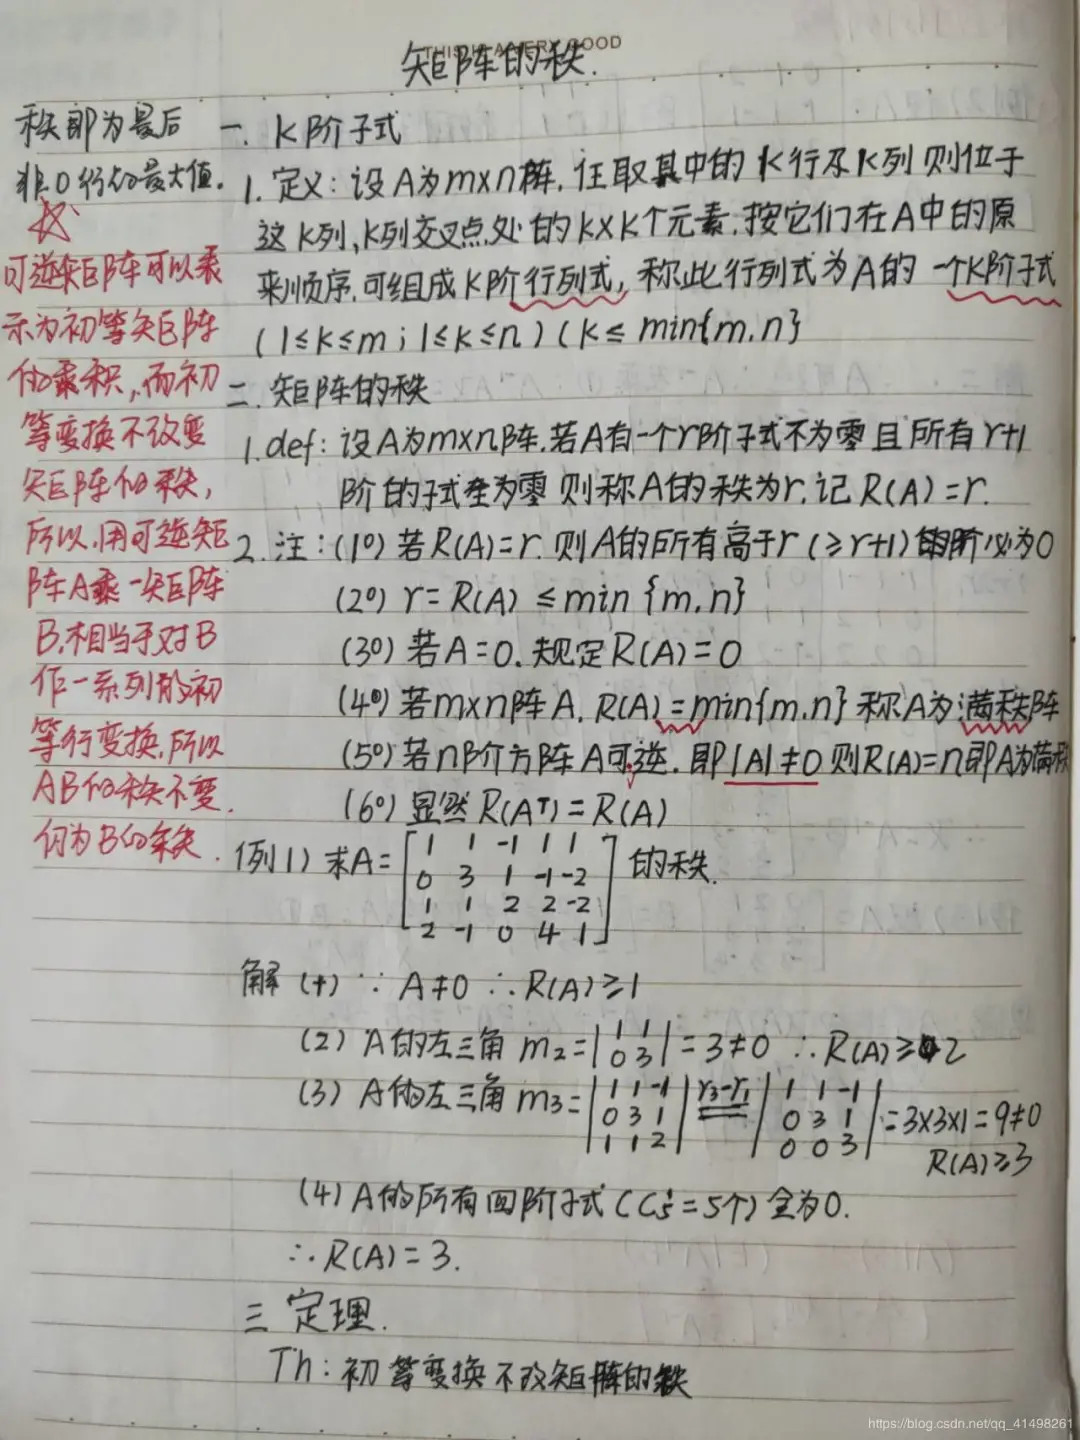 THIS IS A VERY GOOD
矩阵的秩.
秩即为最后
非0行的最大值.
可逆矩阵可以表
示为初等矩阵
的乘积,而初
等变换不改变
矩阵的秩,
所以,用可逆矩
阵A乘一矩阵
B,相当于对B
作一系列的初
等行变换,所以
AB的秩不变.
仍为B的秩.
一、K阶子式
1. 定义: 设A为m×n阵, 任取其中的K行及K列 则位于
这K列,K列交叉点处的K×K个元素,按它们在A中的原
来顺序,可组成K阶行列式, 称此行列式为A的一个K阶子式
(1≤k≤m ; 1≤k≤n) (k≤ min{m,n}
二. 矩阵的秩
1. def: 设A为m×n阵,若A有一个r阶子式不为零且所有r+1
阶的子式全为零 则称A的秩为r,记 R(A)=r.
2. 注: (1º) 若R(A)=r, 则A的所有高于r(≥r+1)的阶必为0
(2º) r=R(A) ≤min {m,n}
(3º) 若A=0, 规定R(A)=0
(4º) 若m×n阵A, R(A)=min{m,n} 称A为满秩阵
(5º) 若n阶方阵A可逆, 即|A|≠0 则R(A)=n即A为满秩
(6º) 显然R(Aᵀ)=R(A)
例1) 求A= [ 1 1 -1 1 1 的秩.
0 3 1 -1 -2
1 1 2 2 -2
2 -1 0 4 1 ]
解 (1) ∵ A≠0 ∴R(A)≥1
(2) A的左三角 m₂= | 1 1 | =3≠0 ∴R(A)≥2
0 3
(3) A的左三角 m₃= | 1 1 -1 | r₃-r₁ | 1 1 -1 |
0 3 1 0 3 1 =3×3×1=9≠0
1 1 2 0 0 3 R(A)≥3
(4) A的所有四阶子式(C₅⁴=5个) 全为0.
∴R(A)=3.
三 定理.
Th: 初等变换不改矩阵的秩
https://blog.csdn.net/qq_41498261